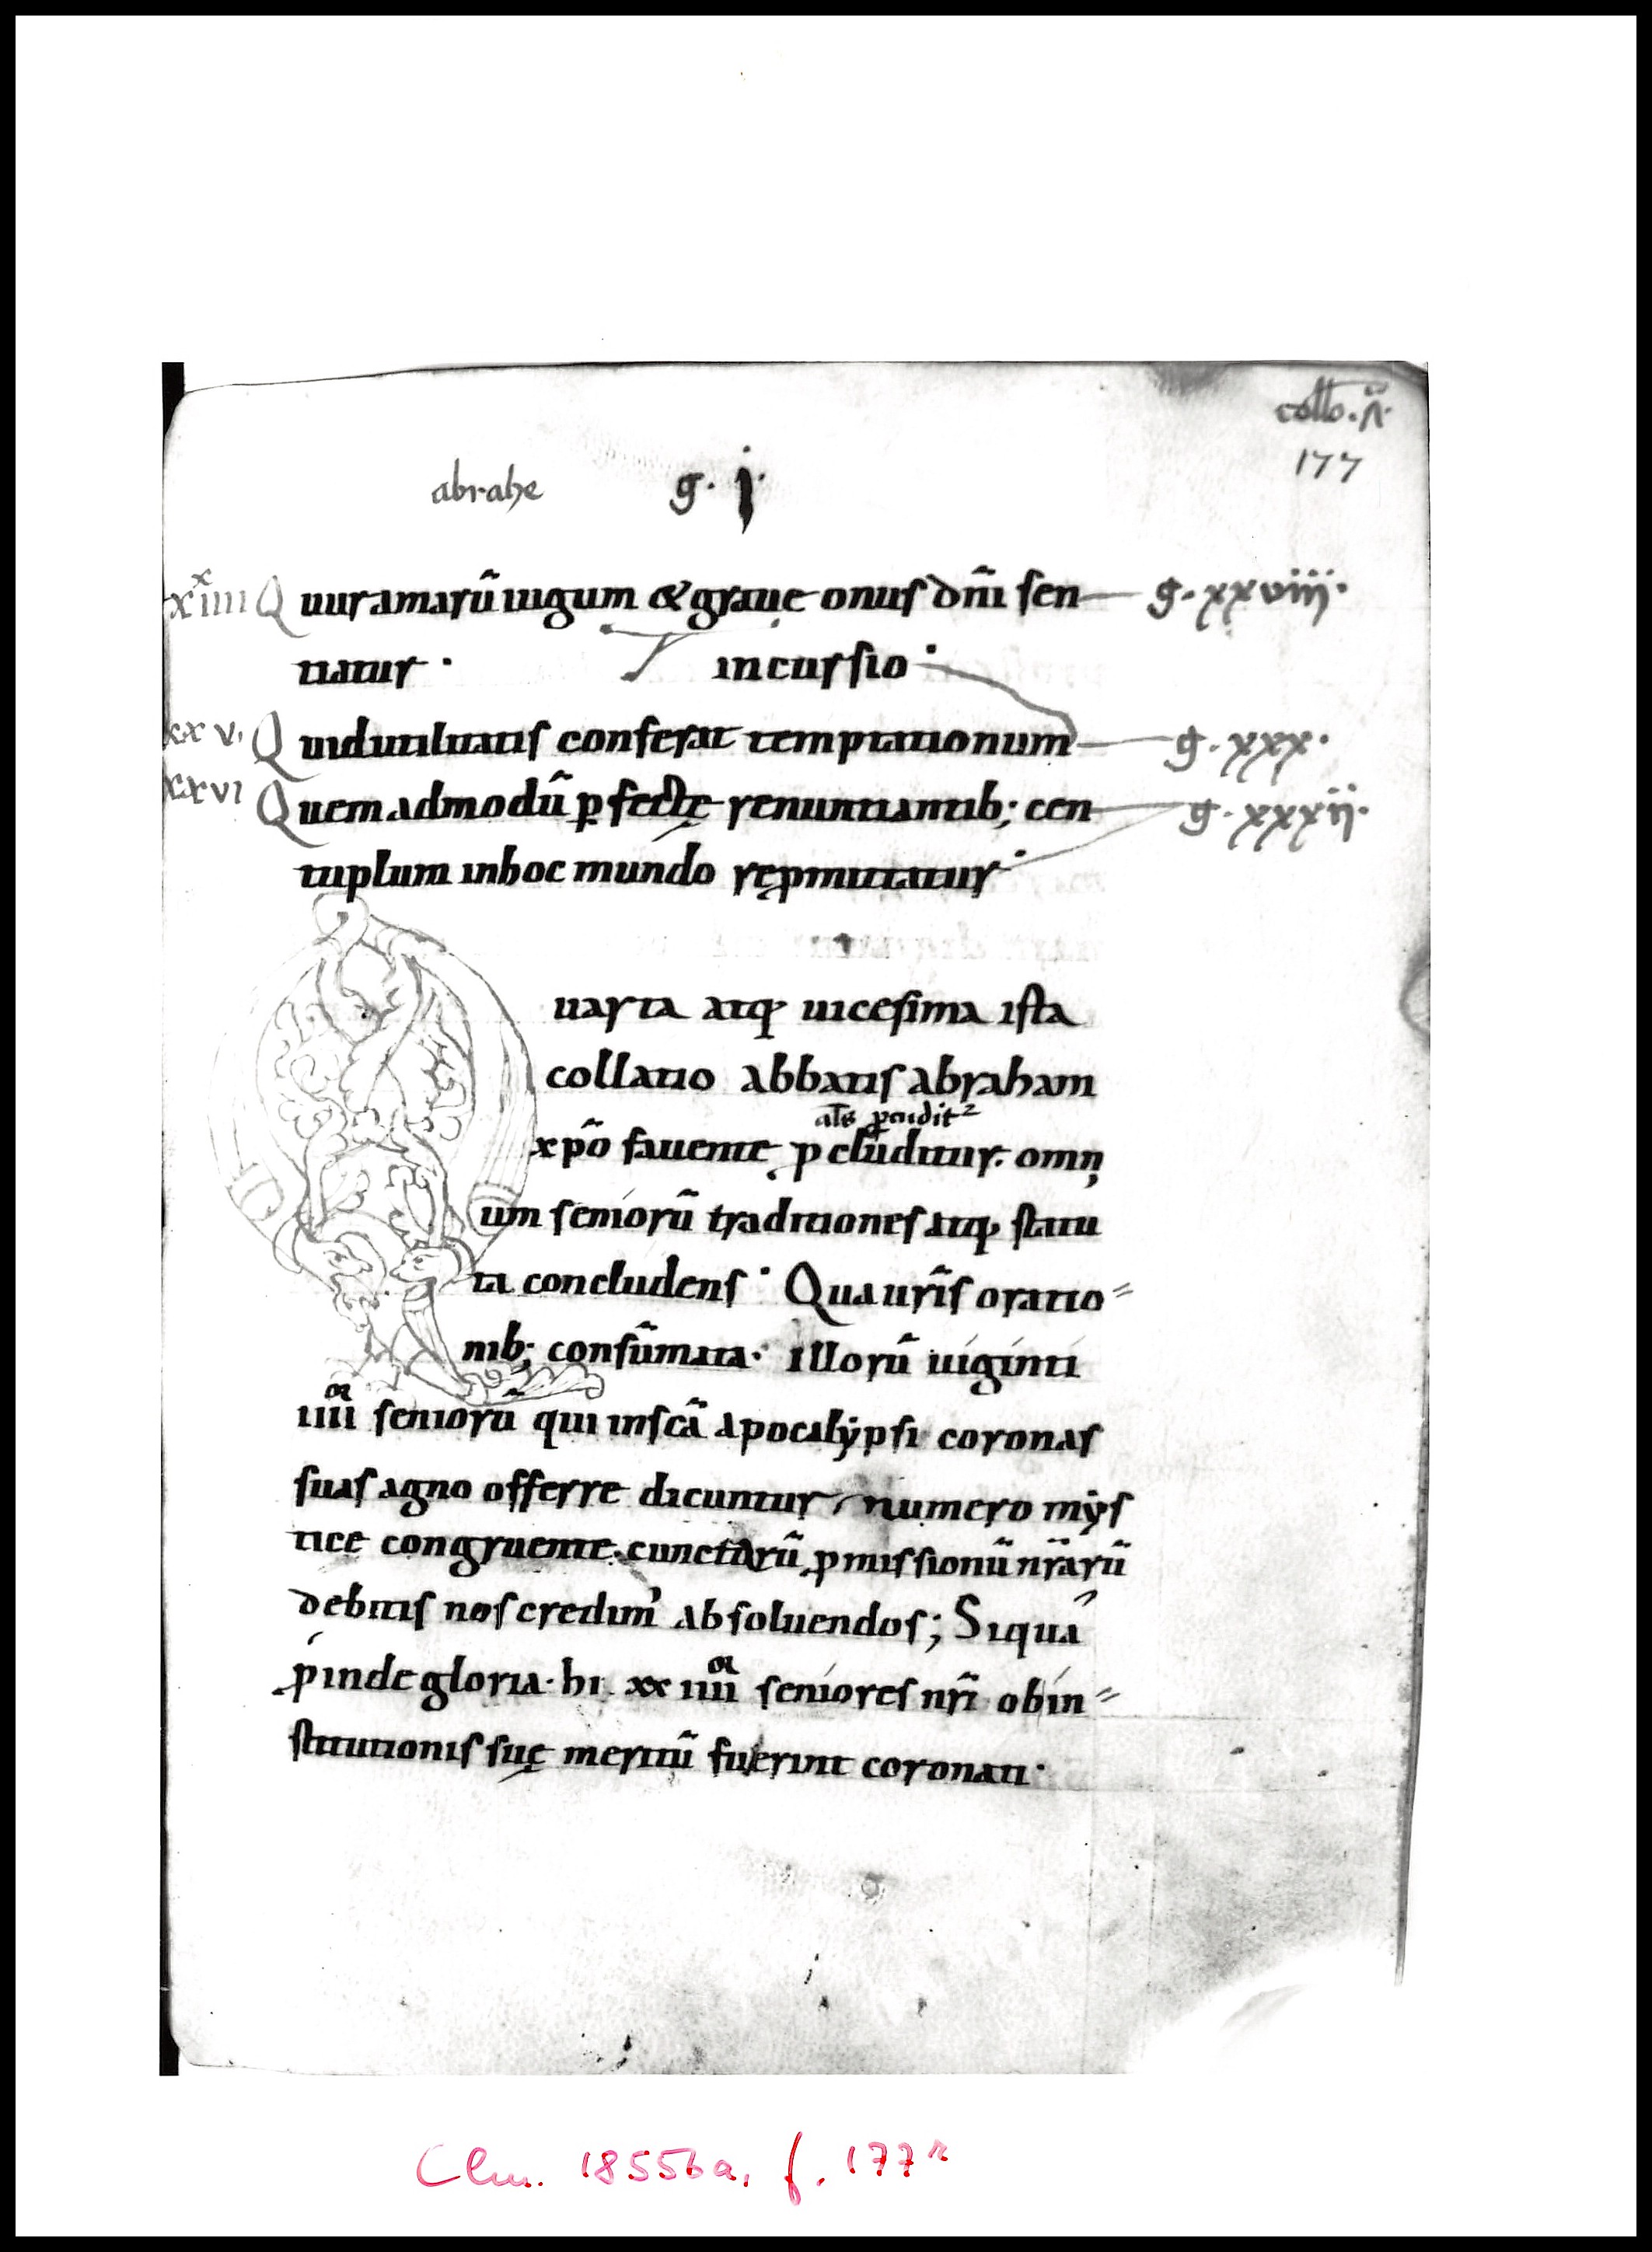 collõ. ñ.
177
abrahe g. j.
xxiiii Quur amarũ iugum & graue onus dñi sen g. xxviii.
tiatur . incursio .
xx v. Quid utilitatis conferat temptationum g. xxx.
xxvi Quem admodũ ꝑfectę renuntiantib; cen g. xxxii.
tuplum inhoc mundo ręꝓmittatur .
Quarta atq; uicesima ista
collatio abbatis abraham
als ꝓcudit²
xpõ fauente ꝓcluditur. omn
ium seniorũ traditiones atq; statu
ta concludens . Qua urĩs oratio=
nib; consũmata. Illorũ uiginti
iiiior seniorũ qui inscã apocalẏpsi coronas
suas agno offerre dicuntur, numero mẏs
tice congruente. cunctarũ ꝓmissionũ nr̃arũ
debitis nos credim' absoluendos; Siquã
ꝓinde gloria. hi xxiiiior seniores nr̃i obin=
stitutionis suę meritũ fuerint coronati.
Clm. 18556a, f. 177r